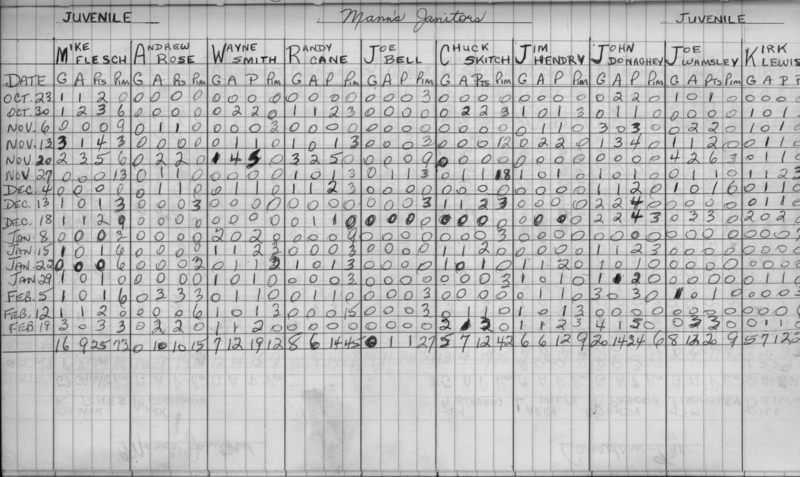 JUVENILE Mann's Janitors JUVENILE
MIKE FLESCH ANDREW ROSE WAYNE SMITH RANDY CANE JOE BELL CHUCK SKITCH JIM HENDRY JOHN DONAGHEY JOE WAMSLEY KIRK LEWIS
DATE G A Pts Pim G A Pts Pim G A P Pim G A P Pim G A P Pim G A Pts Pim G A P Pim G A P Pim G A Pts Pim G A P P
OCT. 23 1 1 2 0 0 0 0 0 0 0 0 0 0 0 3 0 0 0 0 0 2 2 0 1 0 1
OCT. 30 1 2 3 6 0 0 0 0 0 2 2 0 1 1 2 3 0 0 0 0 0 2 2 3 1 0 1 3 0 1 1 0 1 0 1
NOV. 6 0 0 0 9 0 1 1 0 0 0 0 3 0 1 1 0 3 0 3 0 0 2 2 0 1 0 1
NOV. 13 3 1 4 3 0 0 0 0 0 1 1 0 1 0 1 3 0 0 0 3 0 0 0 12 0 2 2 0 1 3 4 0 1 1 2 0 0 1 1
NOV. 20 2 3 5 6 0 2 2 0 1 4 5 0 3 2 5 0 0 0 0 9 0 0 0 0 4 2 6 3 0 1 1
NOV. 27 0 0 0 13 0 1 1 0 0 0 0 0 1 0 1 3 0 1 1 3 0 1 1 18 1 0 1 0 1 0 1 0 0 1 1 0 1 1 2 3
DEC. 4 0 0 0 0 0 1 1 0 0 1 1 0 1 1 2 3 0 0 0 0 1 1 2 0 1 0 1 6 0 1 1
DEC. 13 1 0 1 3 0 0 0 3 0 0 0 0 0 0 0 3 1 1 2 3 0 0 0 0 2 2 4 0 0 0 0 0
DEC. 18 1 1 2 9 0 0 0 0 0 0 0 0 0 1 1 0 0 0 0 0 0 0 0 0 0 0 0 0 2 2 4 3 0 3 3 0 2 0 2
JAN. 8 0 0 0 2 0 0 0 0 2 0 2 0 0 0 0 3 0 0 0 0
JAN. 15 1 0 1 6 0 0 0 0 1 1 2 3 0 0 0 3 0 0 0 0 1 1 2 0 0 0 0 0 1 1 2 3 0 0 0 0
JAN. 22 0 0 0 6 0 0 0 3 1 0 1 3 0 0 0 0 1 0 1 0 1 1 2 0 1 0 1 0 0 0 0 0
JAN. 29 1 0 1 0 0 0 0 0 1 0 1 0 0 0 0 3 0 0 0 0 0 0 0 3 1 0 1 0 1 1 2 0 0 0 0 0 0 1 1
FEB. 5 1 0 1 6 0 3 3 3 0 1 1 0 0 1 1 0 0 0 0 3 0 0 0 0 0 1 1 0 3 0 3 0 1 0 1 0
FEB. 12 1 1 2 0 0 0 0 6 1 0 1 3 0 0 0 15 0 0 0 3 0 1 1 0 1 0 1 3 0 0 0 0
FEB 19 3 0 3 3 0 2 2 0 1 1 2 0 0 0 0 0 2 1 2 0 1 1 2 3 4 1 5 0 0 3 3 0 0 1 1
16 9 25 73 0 10 10 15 7 12 19 12 8 6 14 45 0 1 1 27 5 7 12 42 6 6 12 9 20 14 24 6 8 12 20 9 5 7 12